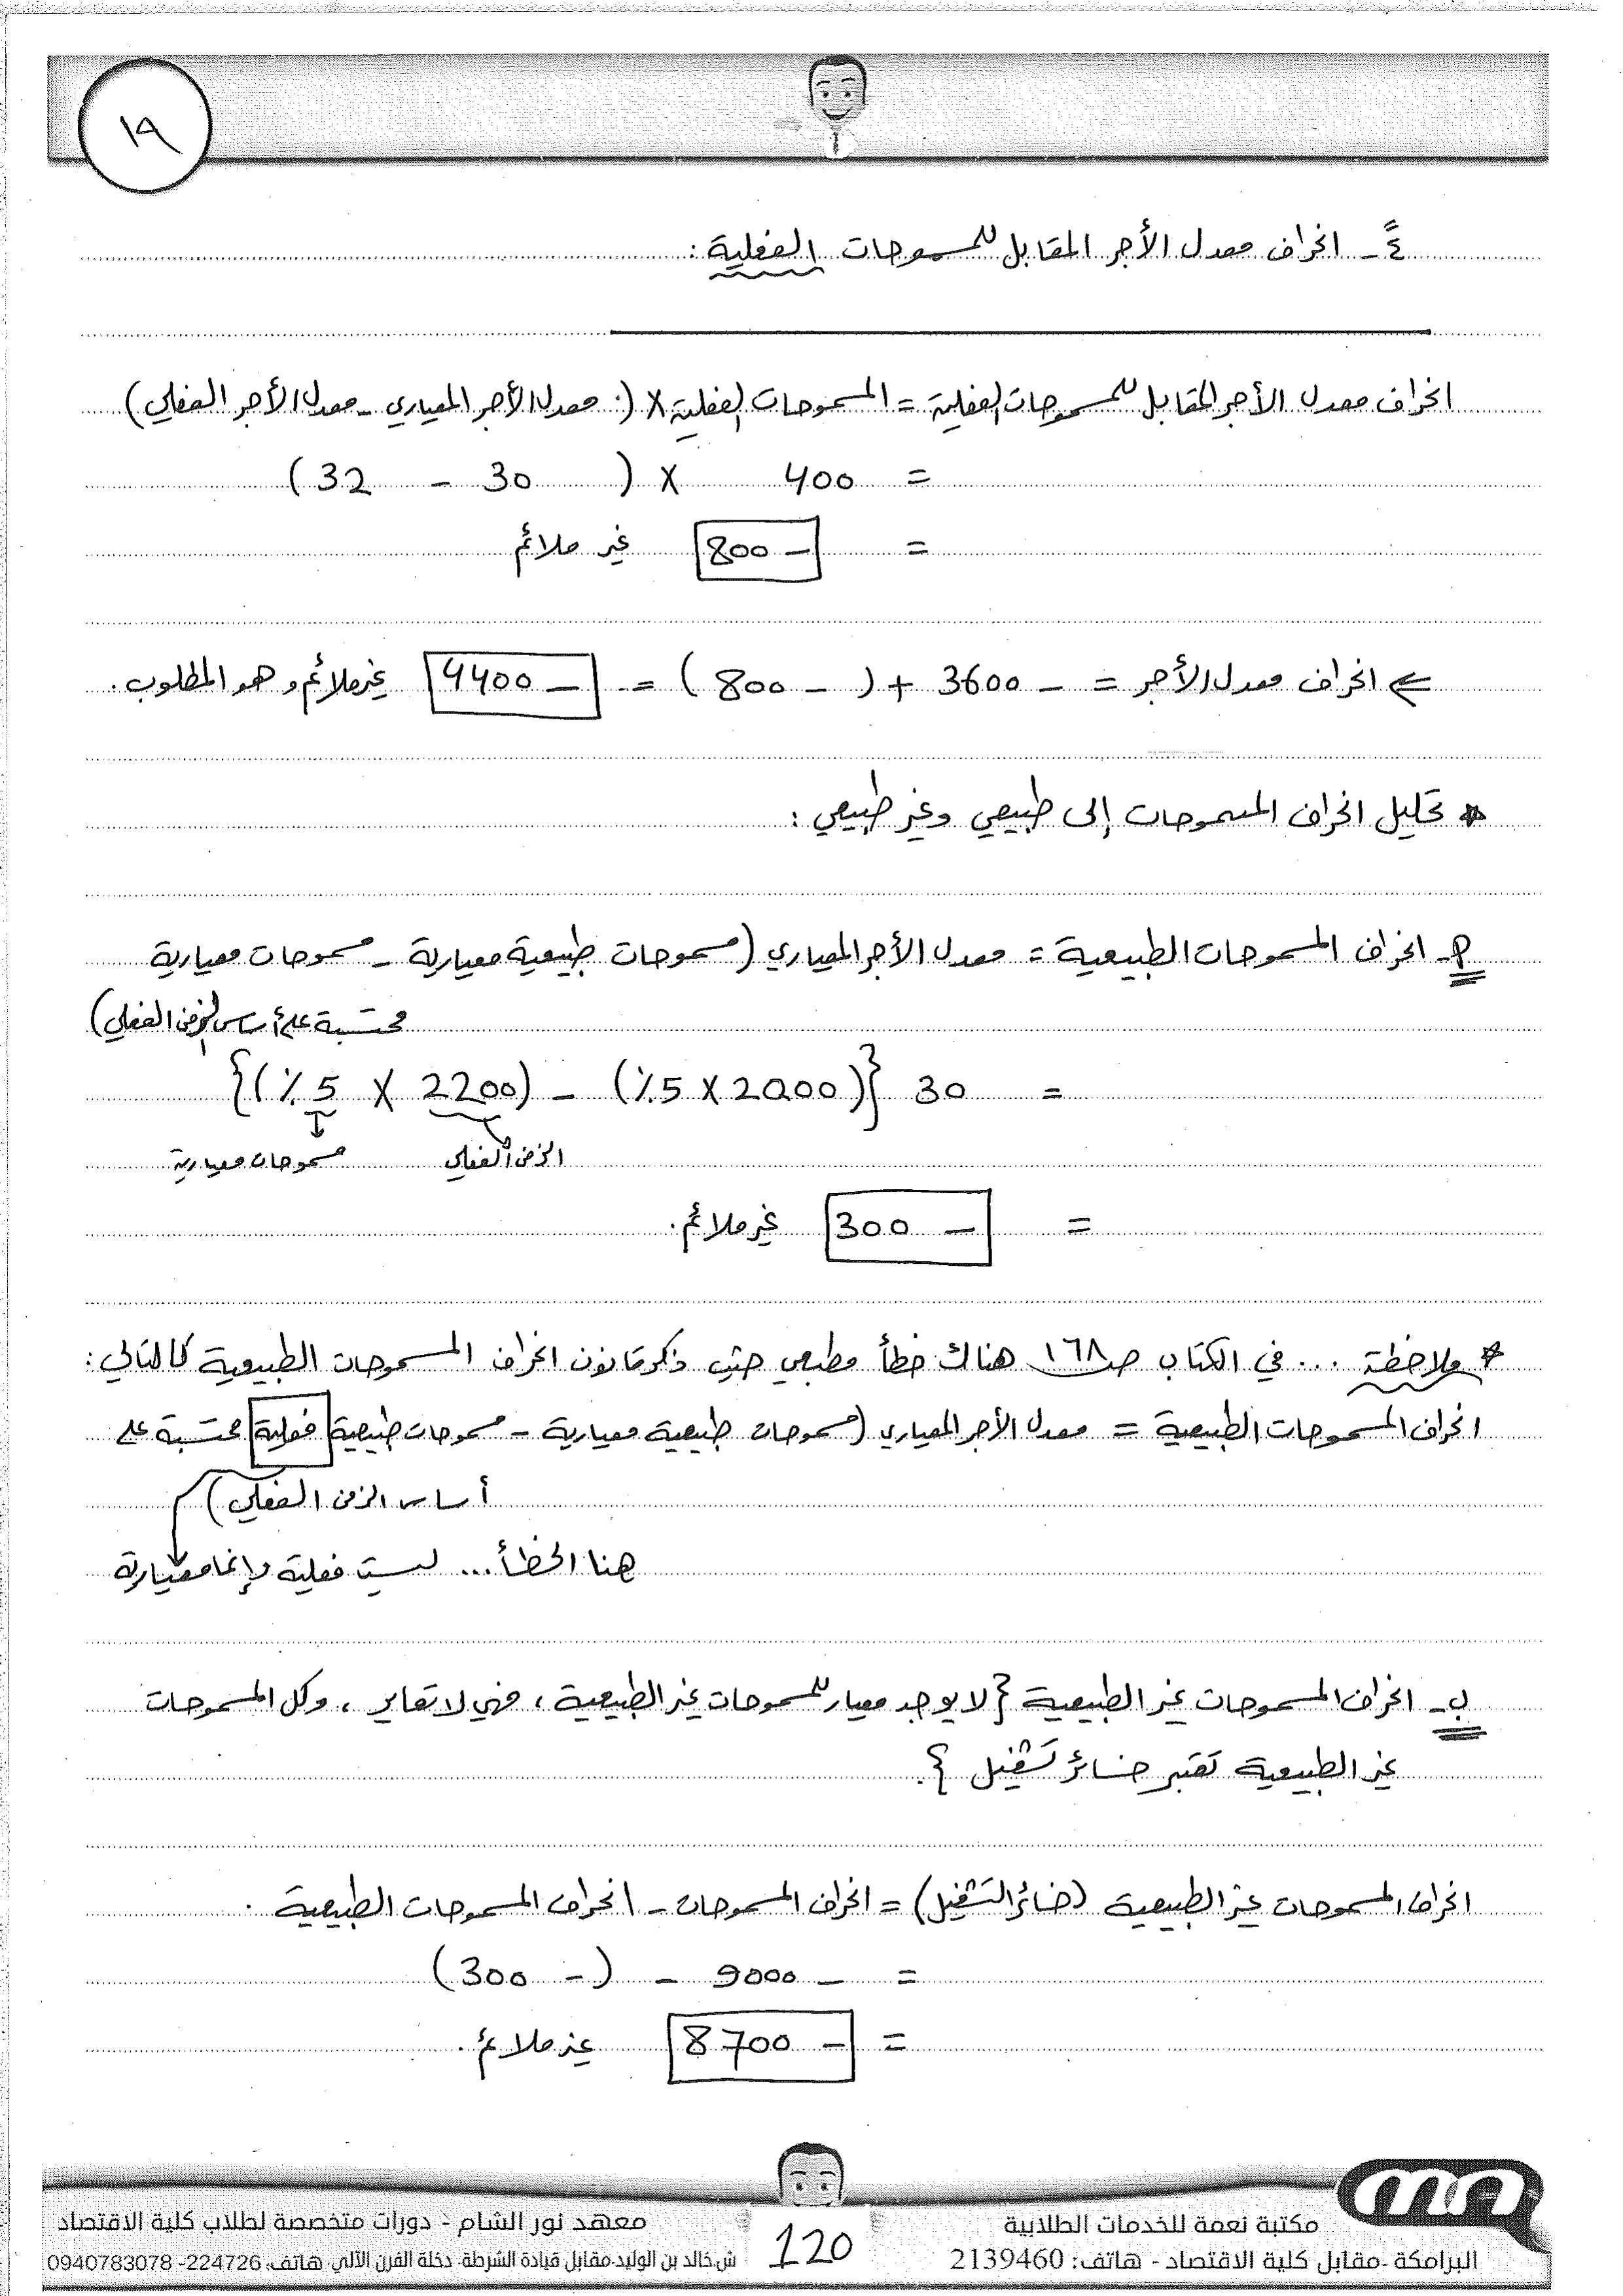 ١٩
٤ً- انحراف معدل الأجر المقابل للمسموحات الفعلية :
انحراف معدل الأجر المقابل للمسموحات الفعلية = المسموحات الفعلية × ( معدل الأجر المعياري - معدل الأجر الفعلي )
= 400 × ( 30 - 32 )
= - 800 غير ملائم
⇐ انحراف معدل الأجر = - 3600 + ( - 800 ) = - 4400 غير ملائم وهو المطلوب .
* تحليل انحراف المسموحات إلى طبيعي وغير طبيعي :
أ- انحراف المسموحات الطبيعية = معدل الأجر المعياري ( مسموحات طبيعية معيارية - مسموحات معيارية
محتسبة على أساس الزمن الفعلي )
= 30 { ( 2000 × 5 ٪ ) - ( 2200 × 5 ٪ ) }
الزمن الفعلي مسموحات معيارية
= - 300 غير ملائم .
* ملاحظة ... في الكتاب صـ ١٦٨ هناك خطأ مطبعي حيث ذكر قانون انحراف المسموحات الطبيعية كالتالي :
انحراف المسموحات الطبيعية = معدل الأجر المعياري ( مسموحات طبيعية معيارية - مسموحات طبيعية فعلية محتسبة على
أساس الزمن الفعلي )
هنا الخطأ ... ليست فعلية وإنما معيارية
ب- انحراف المسموحات غير الطبيعية { لا يوجد معيار للمسموحات غير الطبيعية ، فهي لا تعاير ، وكل المسموحات
غير الطبيعية تعتبر خسائر تشغيل } .
انحراف المسموحات غير الطبيعية ( خسائر التشغيل ) = انحراف المسموحات - انحراف المسموحات الطبيعية .
= - 9000 - ( - 300 )
= - 8700 غير ملائم .
مكتبة نعمة للخدمات الطلابية
البرامكة -مقابل كلية الاقتصاد - هاتف: 2139460
120
معهد نور الشام - دورات متخصصة لطلاب كلية الاقتصاد
ش.خالد بن الوليد-مقابل قيادة الشرطة- دخلة الفرن الآلي- هاتف: 224726- 0940783078